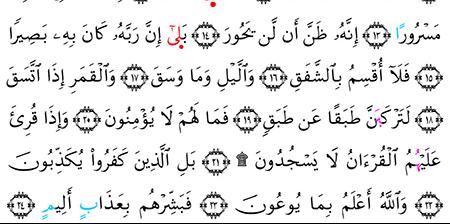 مَسْرُورًا ﴿١٣﴾ إِنَّهُۥ ظَنَّ أَن لَّن يَحُورَ ﴿١٤﴾ بَلَىٰٓ إِنَّ رَبَّهُۥ كَانَ بِهِۦ بَصِيرًا
﴿١٥﴾ فَلَآ أُقْسِمُ بِٱلشَّفَقِ ﴿١٦﴾ وَٱلَّيْلِ وَمَا وَسَقَ ﴿١٧﴾ وَٱلْقَمَرِ إِذَا ٱتَّسَقَ
﴿١٨﴾ لَتَرْكَبَنَّ طَبَقًا عَن طَبَقٍ ﴿١٩﴾ فَمَا لَهُمْ لَا يُؤْمِنُونَ ﴿٢٠﴾ وَإِذَا قُرِئَ
عَلَيْهِمُ ٱلْقُرْءَانُ لَا يَسْجُدُونَ ۩ ﴿٢١﴾ بَلِ ٱلَّذِينَ كَفَرُوا۟ يُكَذِّبُونَ
﴿٢٢﴾ وَٱللَّهُ أَعْلَمُ بِمَا يُوعُونَ ﴿٢٣﴾ فَبَشِّرْهُم بِعَذَابٍ أَلِيمٍ ﴿٢٤﴾